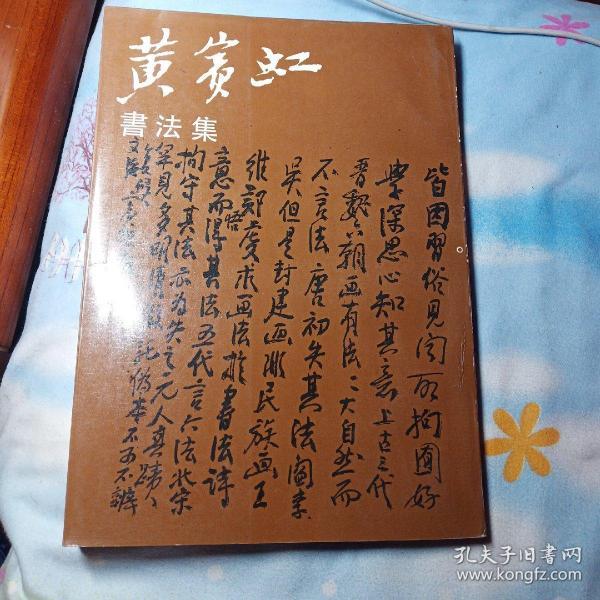 黄宾虹
書法集
皆因習俗見闻所拘囿好
學深思心知其意上古三代
晋魏六朝画有法〻大自然而
不言法唐初失其法阎李
吴但是封建画非民族画王
維郑虔求画法於書法詩
意而悟得其法五代言六法北宋
拘守其法亦为失之元人真蹟
罕見多明清
偽本不可不辨
孔夫子旧书网
www.kongfz.com